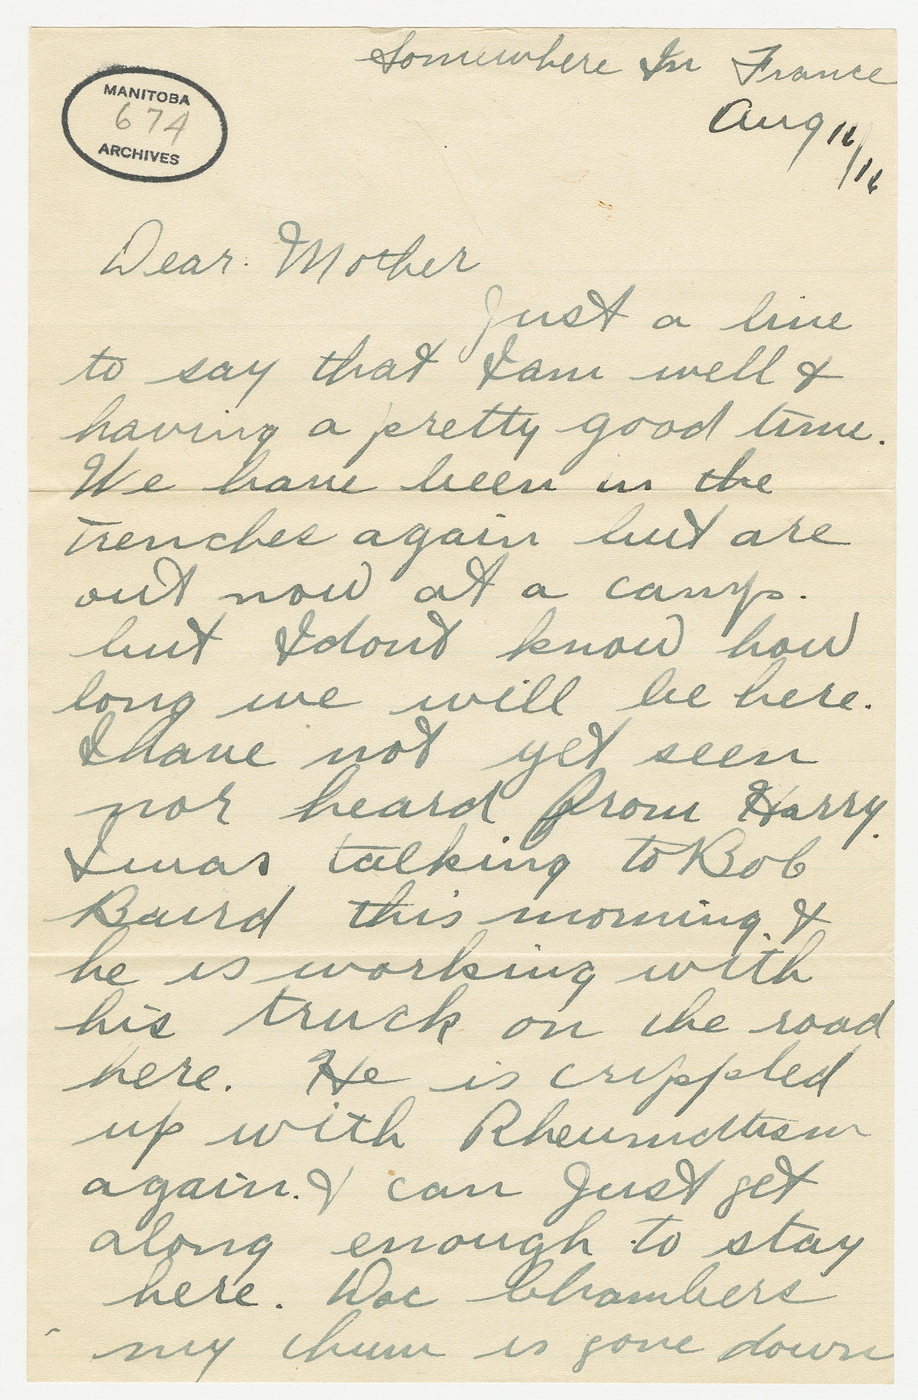 Somewhere In France
Aug 16/16
MANITOBA
674
ARCHIVES
Dear. Mother
Just a line
to say that I am well &
having a pretty good time.
We have been in the
trenches again but are
out now at a camp.
but I dont know how
long we will be here.
I have not yet seen
nor heard from Harry.
I was talking to Bob
Baird this morning &
he is working with
his truck on the road
here. He is crippled
up with Rheumatism
again. & can just get
along enough to stay
here. Doc Chambers
my chum is gone down